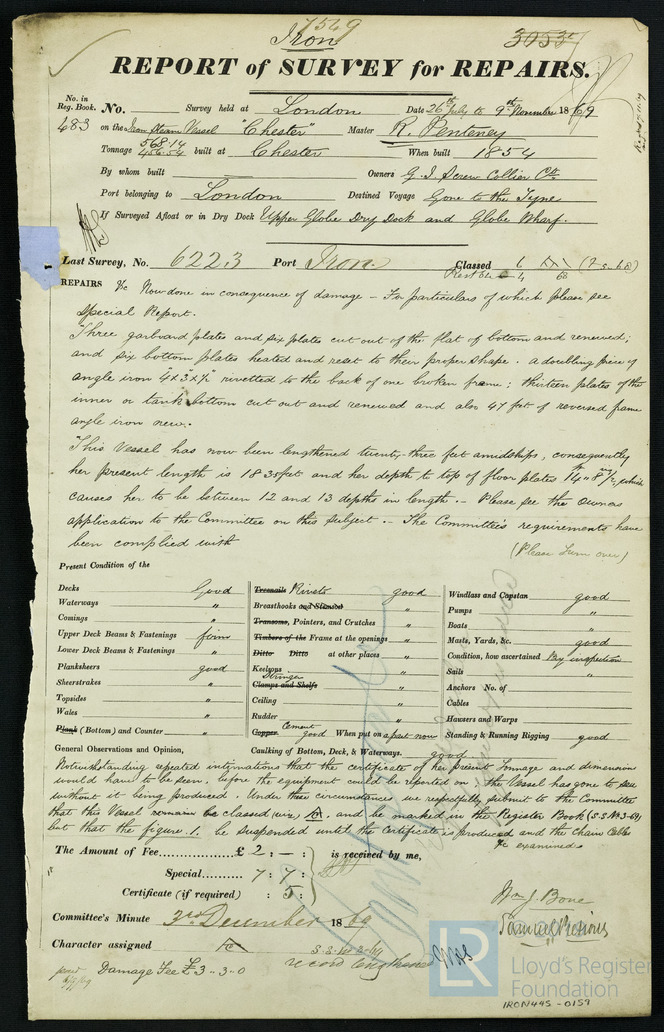 7569
Iron
30537
REPORT of SURVEY for REPAIRS.
No. in Reg. Book. No. Survey held at London Date 26th July to 9th November 1869
483 on the Iron Steam Vessel "Chester" Master R. Penteney
Tonnage 568.14 456.54 built at Chester When built 1854
By whom built Owners G. I. Screw Collier Co.
Port belonging to London Destined Voyage Gone to the Tyne
If Surveyed Afloat or in Dry Dock Upper Globe Dry Dock and Globe Wharf.
Last Survey, No. 6223 Port Iron Classed 6 (7-5-68)
REPAIRS &c Now done in consequence of damage - For particulars of which please see
Special Report.
Three garboard plates and six plates cut out of the flat of bottom and renewed;
and six bottom plates heated and reset to their proper shape. a doubling piece of
angle iron 4x3x½ rivetted to the back of one broken frame: thirteen plates of the
inner or tank bottom cut out and renewed and also 47 feet of reversed frame
angle iron new.
This Vessel has now been lengthened twenty-three feet amidships, consequently
her present length is 183 feet and her depth to top of floor plates 14 ft 8½, which
causes her to be between 12 and 13 depths in length. - Please see the Owners
application to the Committee on this subject. - The Committee's requirements have
been complied with
(Please Turn over)
Present Condition of the
Decks Good
Waterways "
Comings "
Upper Deck Beams & Fastenings firm
Lower Deck Beams & Fastenings "
Planksheers good
Sheerstrakes "
Topsides "
Wales "
Plank (Bottom) and Counter "
Treenails Rivets good
Breasthooks and Stemson "
Transoms, Pointers, and Crutches "
Timbers of the Frame at the openings "
Ditto Ditto at other places "
Keelsons "
Stringer
Clamps and Shelfs "
Ceiling "
Rudder "
Cement
Copper good When put on a part now
Caulking of Bottom, Deck, & Waterways. good
Windlass and Capstan good
Pumps "
Boats "
Masts, Yards, &c. good
Condition, how ascertained By inspection
Sails "
Anchors No. of
Cables
Hausers and Warps
Standing & Running Rigging good
General Observations and Opinion,
Notwithstanding repeated intimations that the certificate of her present Tonnage and dimensions
would have to be seen, before the equipment could be reported on; the Vessel has gone to sea
without it being produced. Under these circumstances we respectfully submit to the Committee
that this Vessel remain be classed (viz. and be marked in the Register Book (S.S No 3-69)
but that the figure 1. be suspended until the Certificate is produced and the chain Cables
&c examined
The Amount of Fee £ 2 : - : is received by me,
Special 7 : 7 :
Certificate (if required) : 5 :
Wm J. Bone
Committee's Minute 3rd December 1869
Character assigned
record lengthened
Damage Fee £3..3..0
Lloyd's Register
Foundation
IRON445-0159